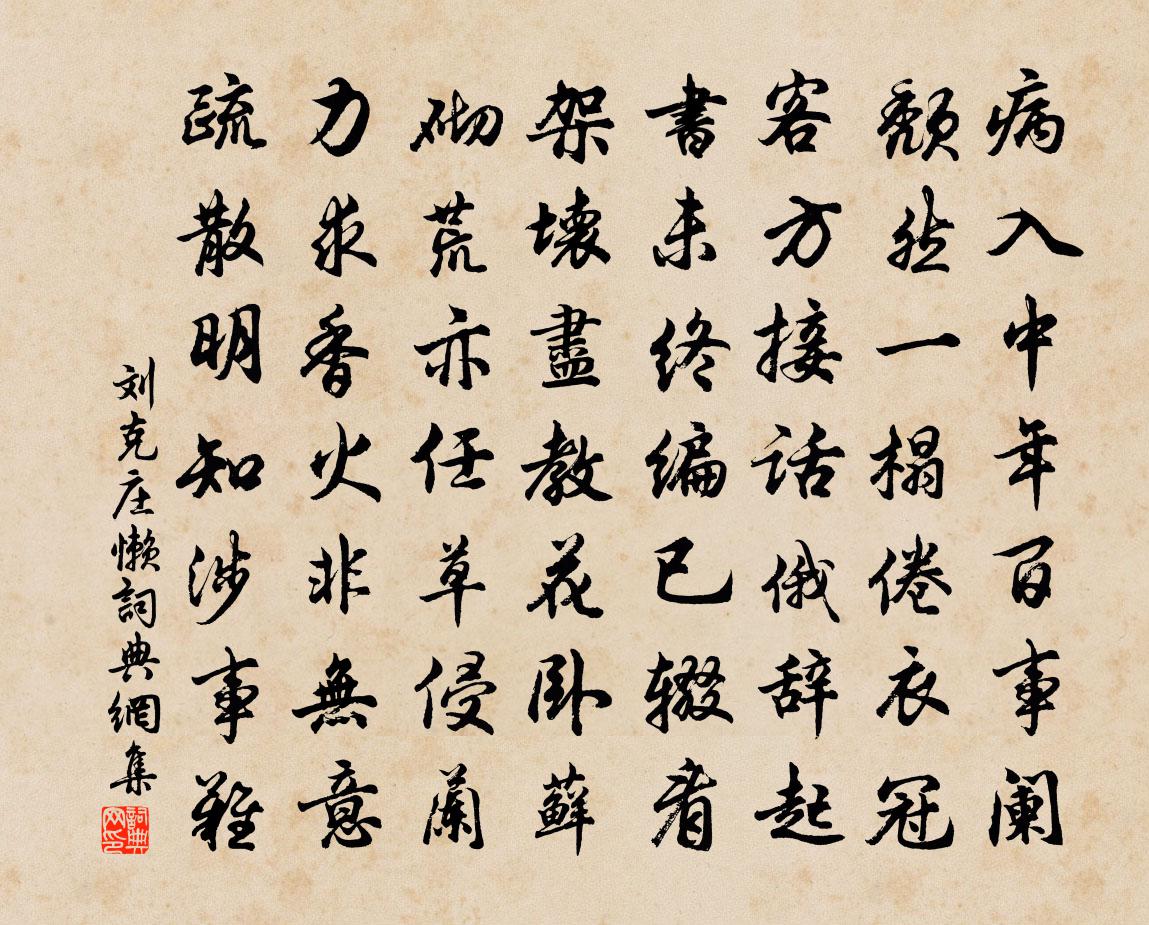 病入中年百事阑
颓然一榻倦衣冠
客方接话俄辞起
書未终编已辍看
架壊盡教花卧蘚
砌荒亦任草侵蘭
力求香火非無意
疏散明知涉事難
刘克庄懒詞典網集
詞典网印